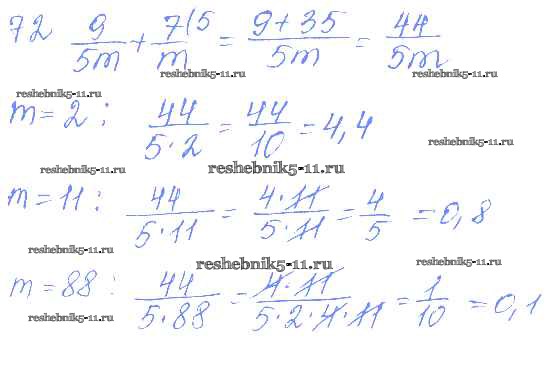 72 9/5m + 7(5/m = 9+35/5m = 44/5m
reshebnik5-11.ru
reshebnik5-11.ru
m=2: 44/5·2 = 44/10 = 4,4
reshebnik5-11.ru
reshebnik5-11.ru
reshebnik5-11.ru
m=11: 44/5·11 = 4·11/5·11 = 4/5 = 0,8
reshebnik5-11.ru
reshebnik5-11.ru
reshebnik5-11.ru
m=88: 44/5·88 = 4·11/5·2·4·11 = 1/10 = 0,1
reshebnik5-11.ru
reshebnik5-11.ru